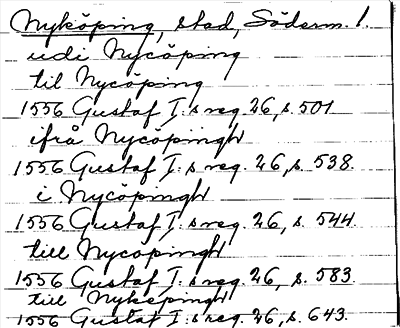 Nyköping, stad, Söderm. l.
udi Nycöping
til Nycöping
1556 Gustaf I:s reg. 26, s. 501
ifrå Nycöpingh
1556 Gustaf I:s reg. 26, s. 538.
i Nycöpingh
1556 Gustaf I:s reg. 26, s. 544
till Nycopingh
1556 Gustaf I:s reg. 26, s. 583
till Nykepingh
1556 Gustaf I:s reg. 26, s. 643.